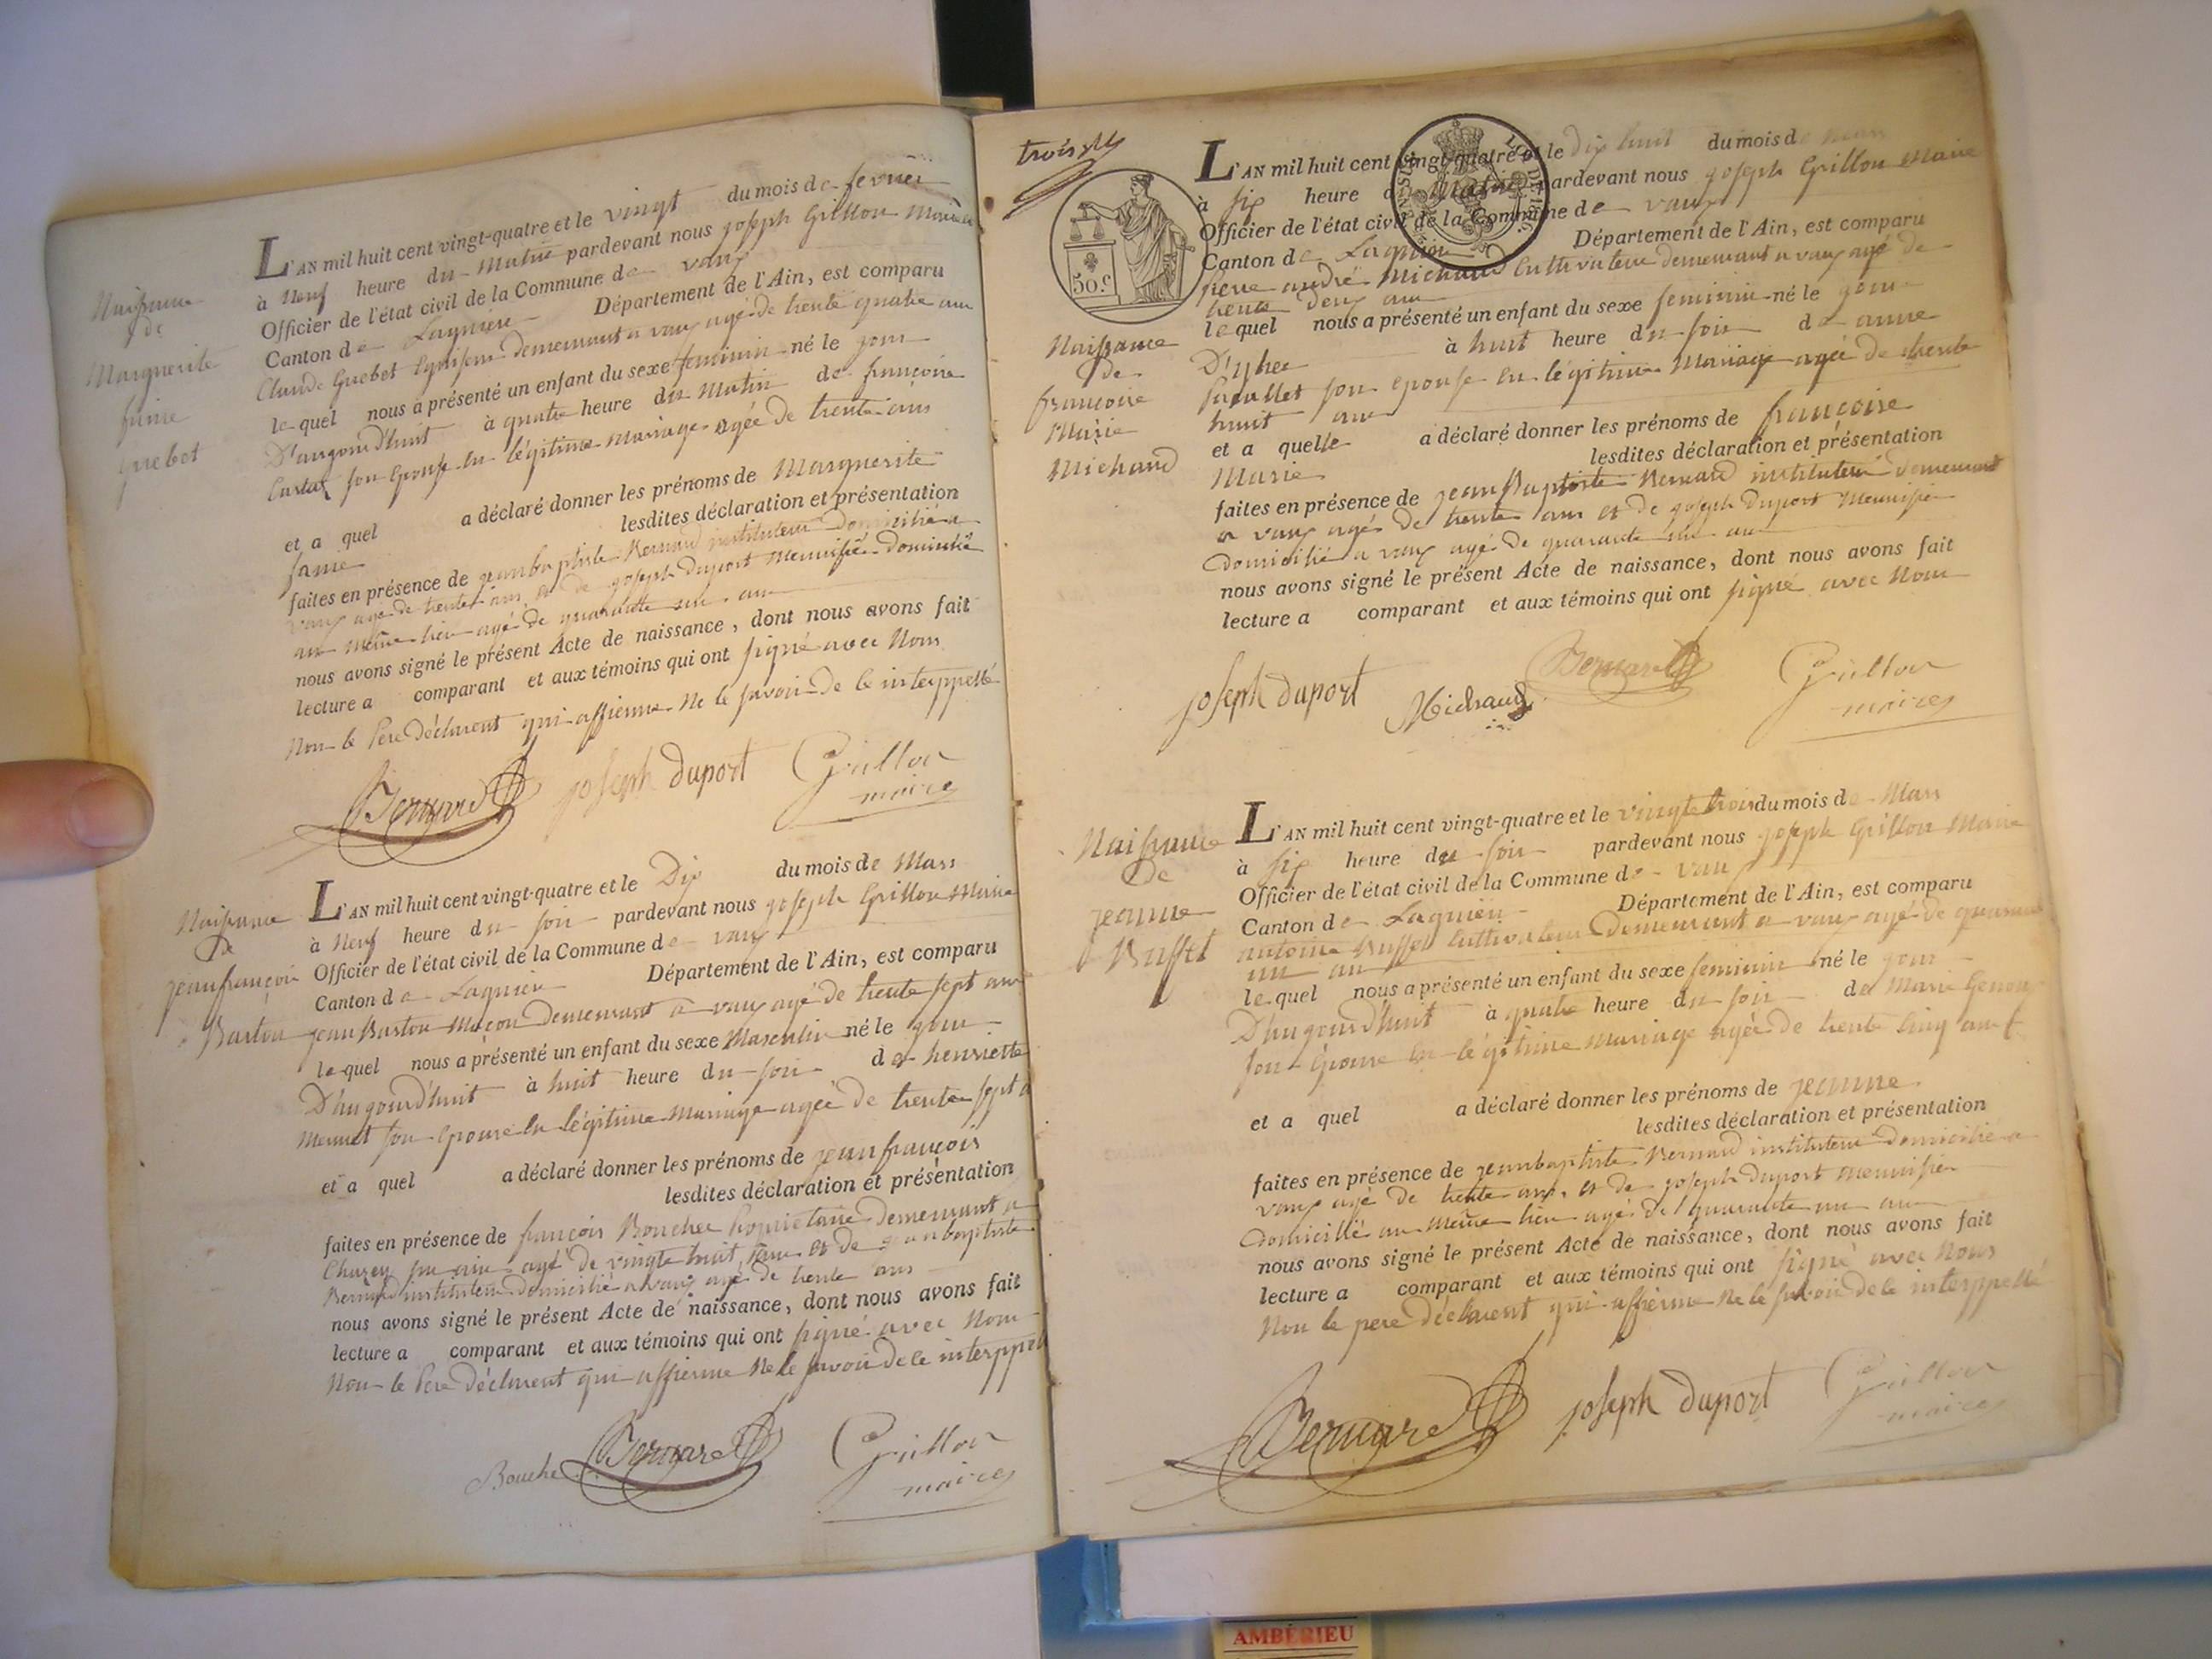 Naissance
de
Marguerite
fanie
guebet
L'AN mil huit cent vingt-quatre et le vingt du mois de fevrier
à Neuf heure du Matin pardevant nous joseph Grillon Maire
Officier de l'état civil de la Commune de vaux
Canton de Lagnieu Département de l'Ain, est comparu
Claude Guebet demeurant a vaux agé de trente quatre ans
lequel nous a présenté un enfant du sexe feminin né le jour
D'aujourd'huit à quatre heure du Matin de françoise
son Epouse en légitime mariage agée de trente ans
et a quel a déclaré donner les prénoms de Marguerite
lesdites déclaration et présentation
faites en présence de jeanbaptiste Bernard instituteur domicilié a
vaux agé de trente ans et de joseph Duport Menuisié domicilié
au même lieu agé de quarante un an
nous avons signé le présent Acte de naissance, dont nous avons fait
lecture a comparant et aux témoins qui ont signé avec Nous
Non le Pere Déclarent qui affierme Ne le savoir de ce interppellé
Bernard joseph duport Grillon
maire
Naissance
De
jeanfrançois
Barton
L'AN mil huit cent vingt-quatre et le Dix du mois de Mars
à Neuf heure du soir pardevant nous joseph Grillon Maire
Officier de l'état civil de la Commune de vaux
Canton de Lagnieu Département de l'Ain, est comparu
jean Barton Maçon demeurant a vaux agé de trente sept ans
lequel nous a présenté un enfant du sexe Masculin né le jour
D'aujourd'huit à huit heure du soir de henriette
Mermet son Epouse en légitime Mariage agée de trente sept a
et a quel a déclaré donner les prénoms de jeanfrançois
lesdites déclaration et présentation
faites en présence de françois Bouchee Proprietaire demeurant a
agé de vingte huit ans et de jeanbaptiste
Bernard instituteur domicilié a vaux agé de trente ans
nous avons signé le présent Acte de naissance, dont nous avons fait
lecture a comparant et aux témoins qui ont signé avec Nous
Non le Pere Déclarent qui affierme Ne le savoir de ce interppel
Bouche Bernard Grillon
maire
50.c
Naissance
de
françoise
Marie
Michaud
L'AN mil huit cent vingt-quatre et le dix huit du mois de Mars
à six heure du Matin pardevant nous joseph Grillon Maire
Officier de l'état civil de la Commune de vaux
Canton de Lagnieu Département de l'Ain, est comparu
piere andré Michaud Cultivateur demeurant a vaux agé de
trente deux ans
lequel nous a présenté un enfant du sexe feminin né le jour
D'yhee à huit heure du soir de anne
son epouse en légitime Mariage agée de trente
huit ans
et a quelle a déclaré donner les prénoms de françoise
Marie lesdites déclaration et présentation
faites en présence de jean Baptiste Bernard instituteur demeurant
a vaux agé de trente ans et de joseph Duport Menuisié
Domicilié a vaux agé de quarante un an
nous avons signé le présent Acte de naissance, dont nous avons fait
lecture a comparant et aux témoins qui ont signé avec Nous
joseph duport Michaud Bernard Grillon
maire
Naissance
De
jeanne
Buffet
L'AN mil huit cent vingt-quatre et le vingte trois du mois de Mars
à six heure du soir pardevant nous joseph Grillon Maire
Officier de l'état civil de la Commune de vaux
Canton de Lagnieu Département de l'Ain, est comparu
antoine Buffet Cultivateur Demeurant a vaux agé de quarante
un an
lequel nous a présenté un enfant du sexe feminin né le jour
D'haujourd'huit à quatre heure du soir de Marie Genoux
son Epouse en légitime Mariage agée de trente cinq ans
et a quel a déclaré donner les prénoms de jeanne
lesdites déclaration et présentation
faites en présence de jeanbaptiste Bernard instituteur domicilié a
vaux agé de trente ans, et de joseph Duport Menuisié
Domicillié au même lieu agé de quarante un an
nous avons signé le présent Acte de naissance, dont nous avons fait
lecture a comparant et aux témoins qui ont signé avec Nous
Non le pere Déclarent qui affierme Ne le savoir de ce interppellé
Bernard joseph duport Grillon
maire
AMBÉRIEU